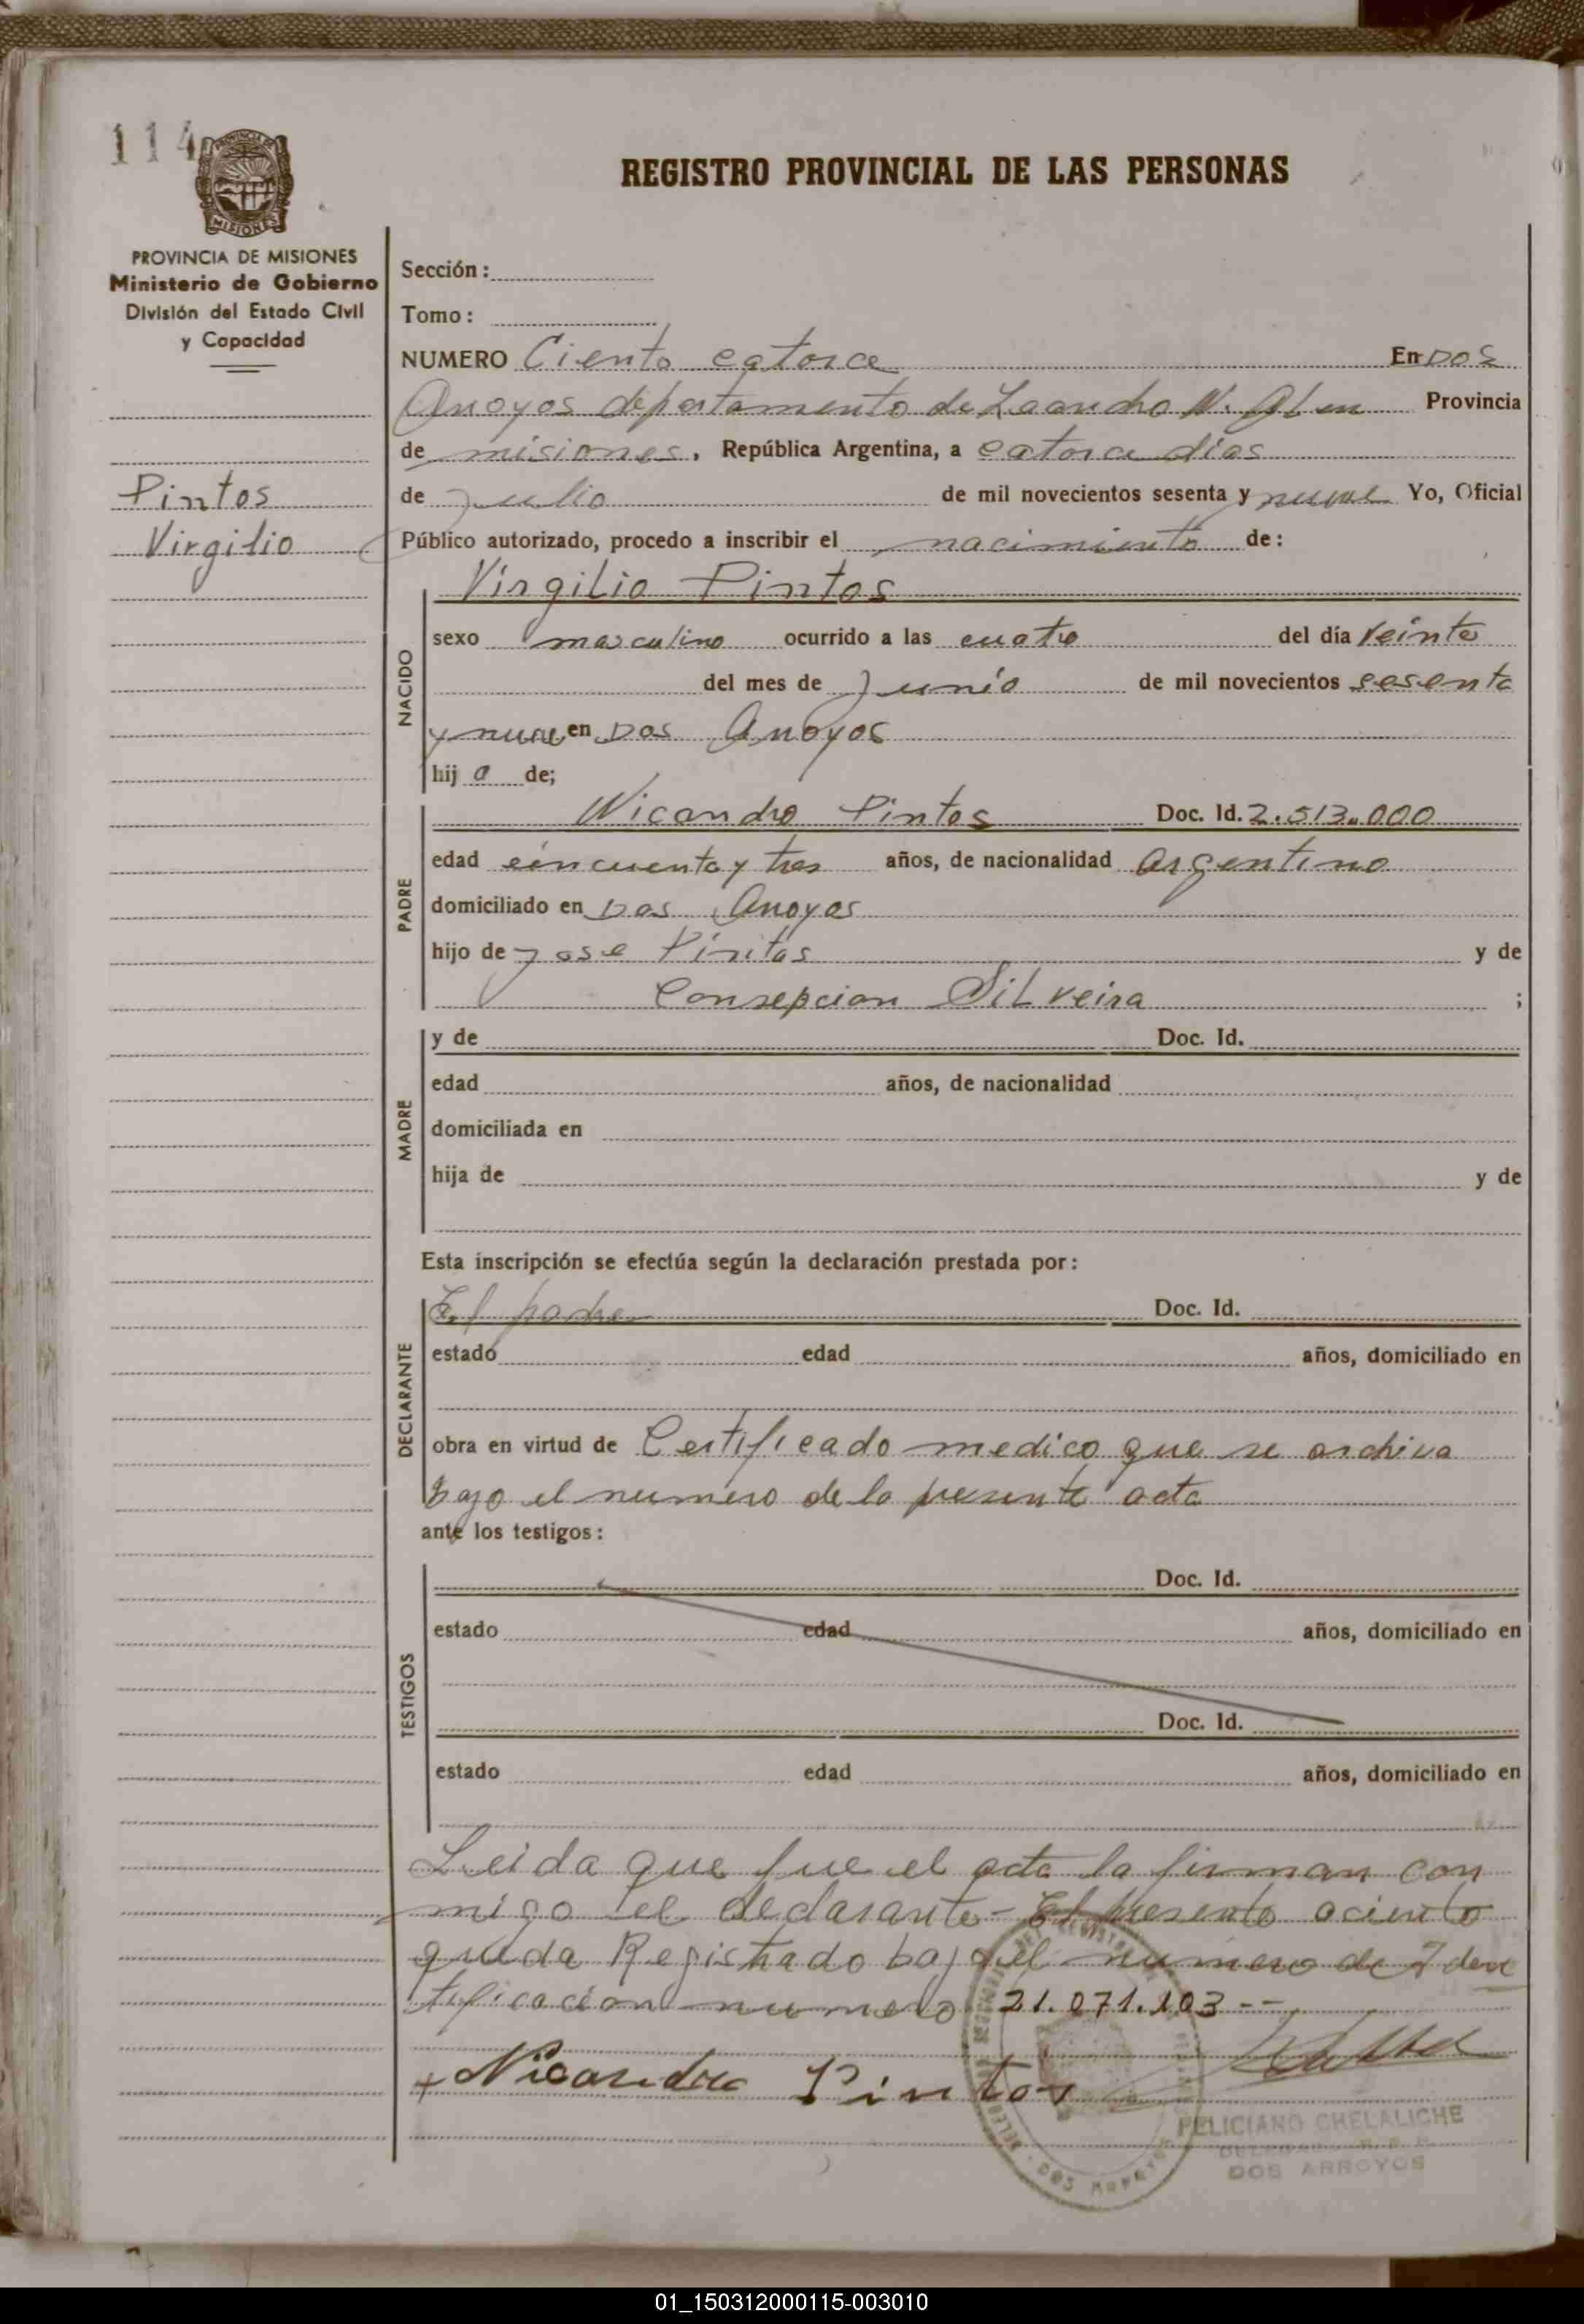 114
PROVINCIA DE MISIONES
Ministerio de Gobierno
División del Estado Civil
y Capacidad
Pintos
Virgilio
REGISTRO PROVINCIAL DE LAS PERSONAS
Sección :
Tomo :
NUMERO Ciento catorce En Dos
Arroyos departamento de Leandro N. Alem Provincia
de misiones, República Argentina, a catorce dias
de Julio de mil novecientos sesenta y nueve Yo, Oficial
Público autorizado, procedo a inscribir el nacimiento de :
Virgilio Pintos
NACIDO
sexo masculino ocurrido a las cuatro del día Veinte
del mes de Junio de mil novecientos sesenta
y nueve en Dos Arroyos
hij o de;
PADRE
Nicandro Pintos Doc. Id. 2.513.000
edad cincuenta y tres años, de nacionalidad argentino
domiciliado en Dos Arroyos
hijo de Jose Pintos y de
Consepcion Silveira ;
MADRE
y de Doc. Id.
edad años, de nacionalidad
domiciliada en
hija de y de
Esta inscripción se efectúa según la declaración prestada por :
DECLARANTE
El padre Doc. Id.
estado edad años, domiciliado en
obra en virtud de Certificado medico que se archiva
bajo el numero de la presente acta
ante los testigos :
TESTIGOS
Doc. Id.
estado edad años, domiciliado en
Doc. Id.
estado edad años, domiciliado en
Leida que fue el acta la firman con
migo el declarante - El presente aciento
queda Registrado bajo el numero de Iden
tificacion numero 21.071.103 --
+ Nicandro Pintos
FELICIANO CHELALICHE
DOS ARROYOS
01_150312000115-003010